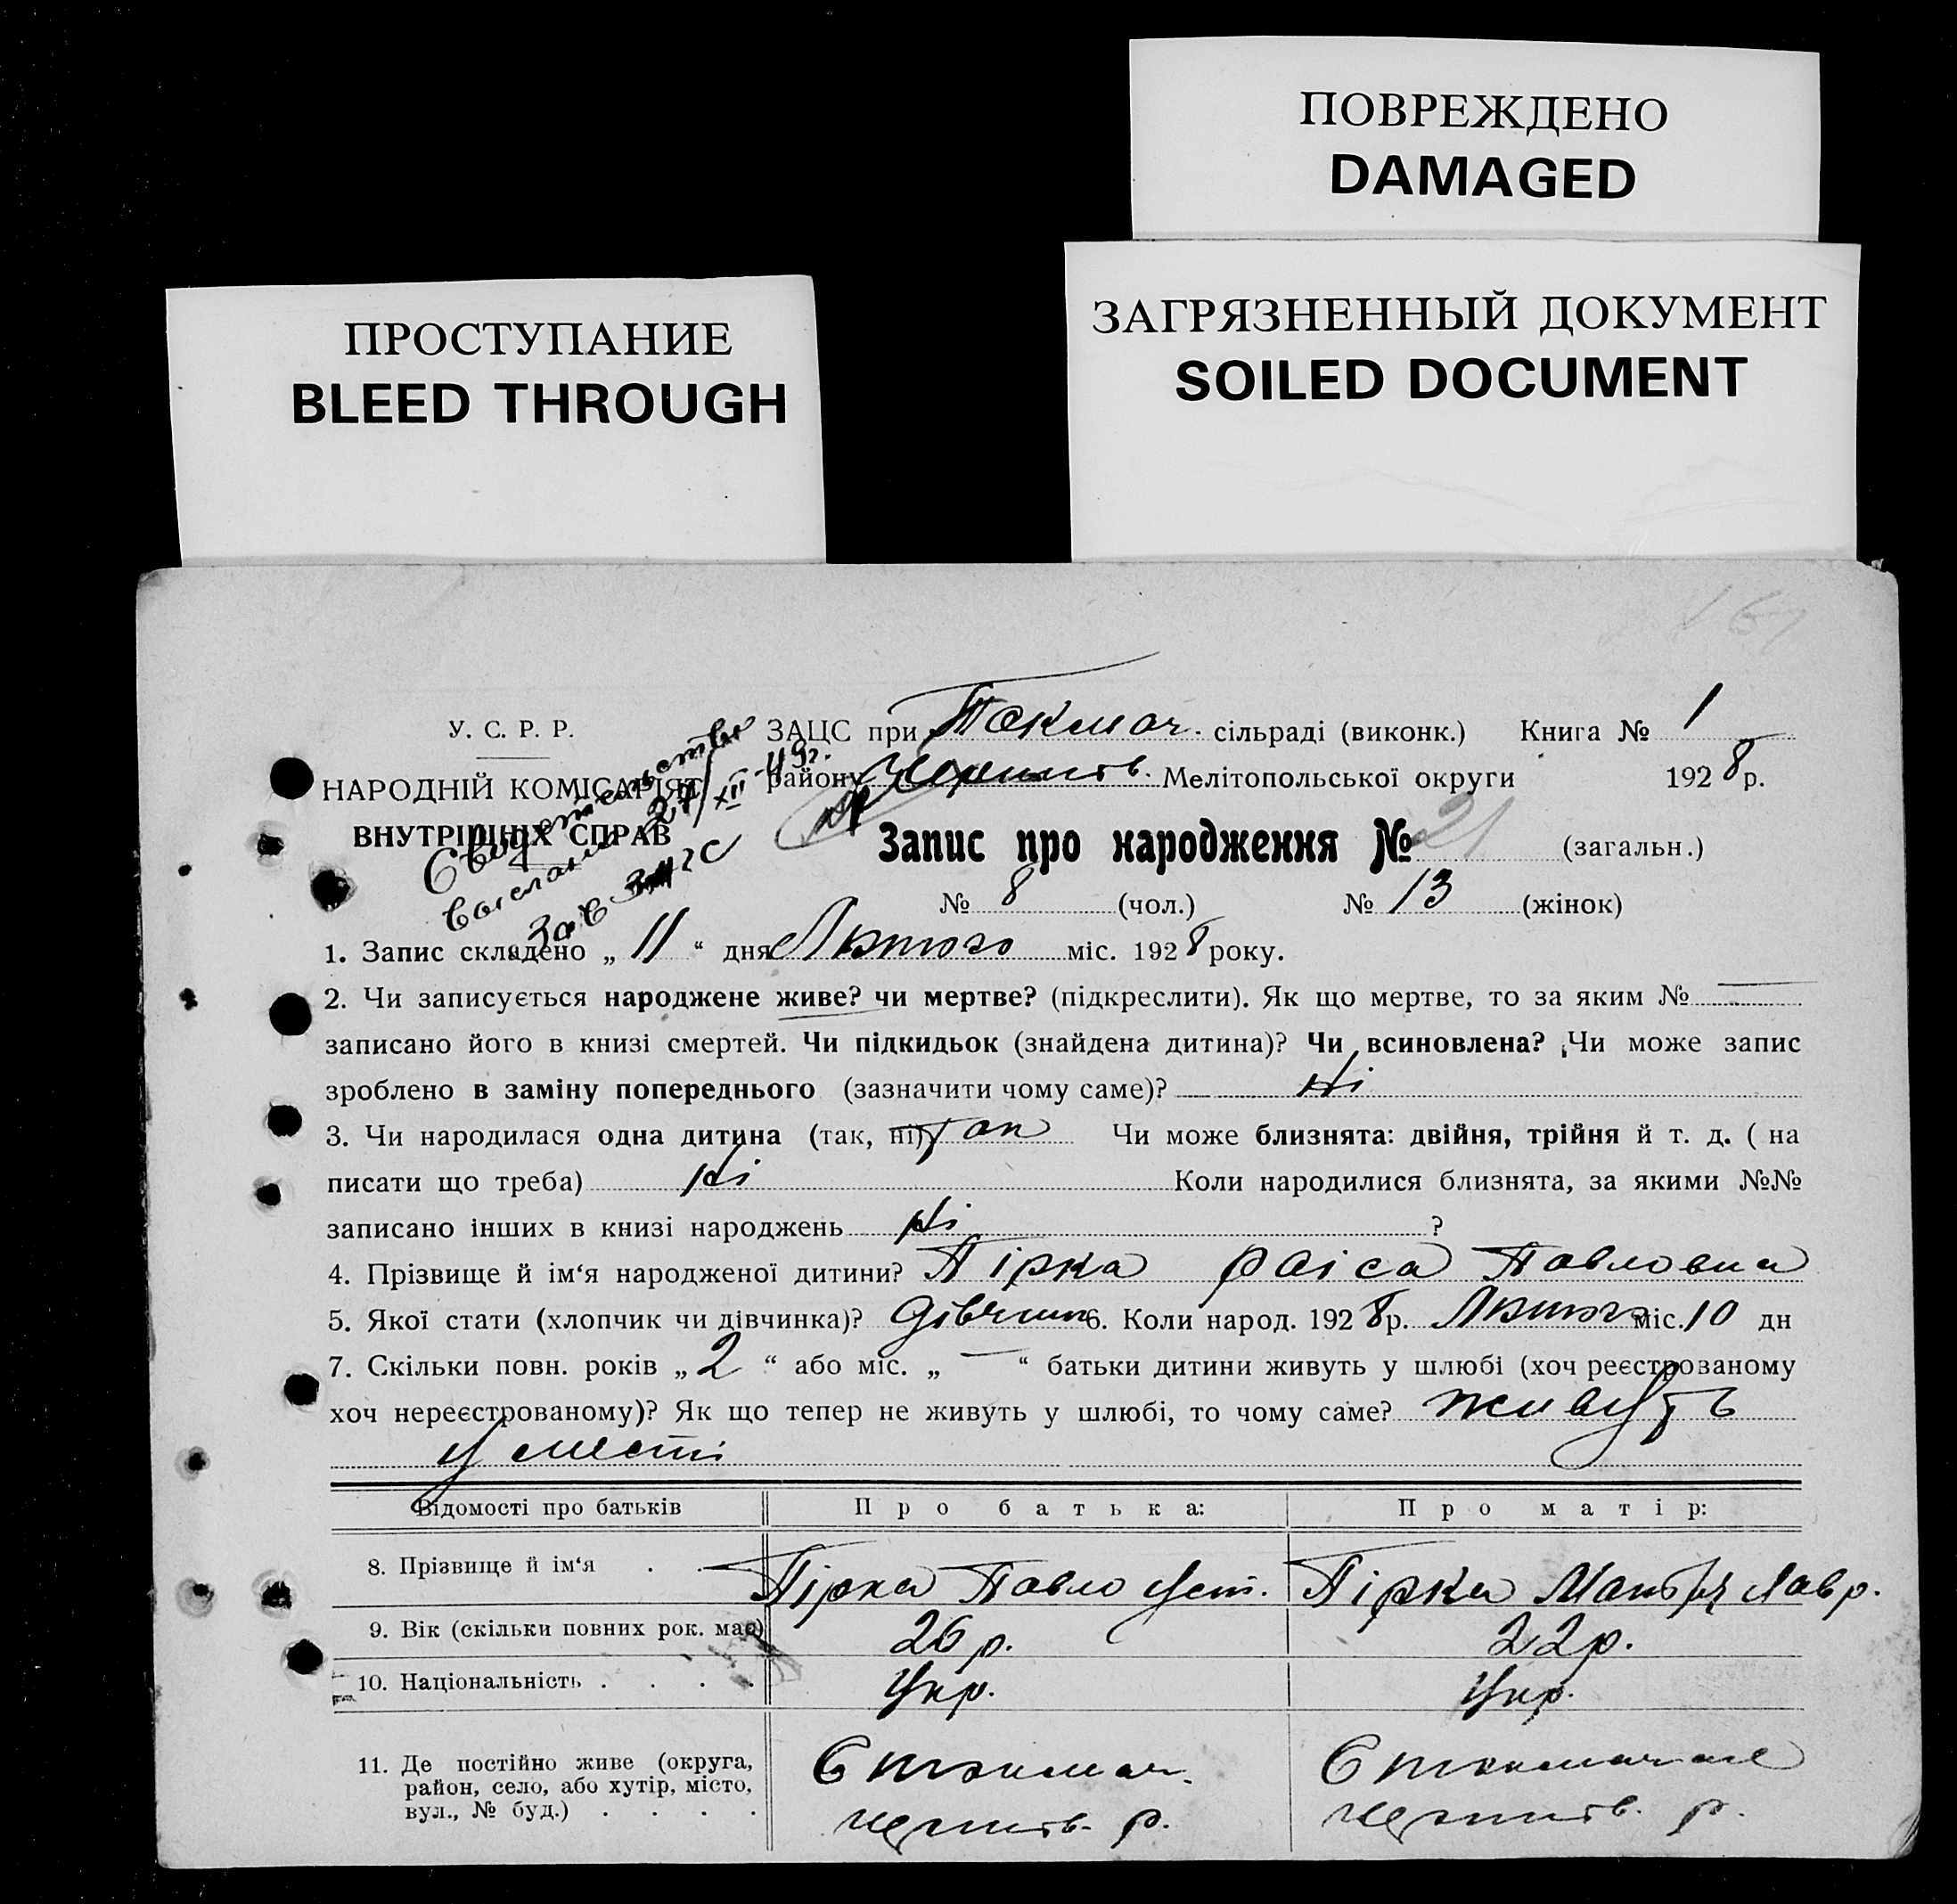 ПОВРЕЖДЕНО
DAMAGED
ПРОСТУПАНИЕ
BLEED THROUGH
ЗАГРЯЗНЕННЫЙ ДОКУМЕНТ
SOILED DOCUMENT
У. С. Р. Р.
НАРОДНІЙ КОМІСАРІЯТ
ВНУТРІШНІХ СПРАВ
Свидетельство
выслано 27/XII-49г.
ЗАЦС при Токмач. сільраді (виконк.) Книга № 1
району Мелітопольської округи 1928 р.
Запис про народження № 21 (загальн.)
№ 8 (чол.) № 13 (жінок)
1. Запис складено „ 11 “ дня Лютого міс. 1928 року.
2. Чи записується народжене живе? чи мертве? (підкреслити). Як що мертве, то за яким № —
записано його в книзі смертей. Чи підкидьок (знайдена дитина)? Чи всиновлена? Чи може запис
зроблено в заміну попереднього (зазначити чому саме)? Ні
3. Чи народилася одна дитина (так, ні) так Чи може близнята: двійня, трійня й т. д. ( на
писати що треба) Ні Коли народилися близнята, за якими №№
записано інших в книзі народжень Ні ?
4. Прізвище й ім‘я народженої дитини? Пірка Раіса Павловна
5. Якої стати (хлопчик чи дівчинка)? Дівчин 6. Коли народ. 1928 р. Лютого міс. 10 дн
7. Скільки повн. років „ 2 “ або міс. „ — “ батьки дитини живуть у шлюбі (хоч реєстрованому
хоч нереєстрованому)? Як що тепер не живуть у шлюбі, то чому саме? живуть
Відомості про батьків Про батька: Про матір:
8. Прізвище й ім‘я . . Пірка Павло Уст. Пірка Лавр.
9. Вік (скільки повних рок. має) 26 р. 22 р.
10. Національність . . . . Укр. Укр.
11. Де постійно живе (округа,
район, село, або хутір, місто,
вул., № буд.) . . . .